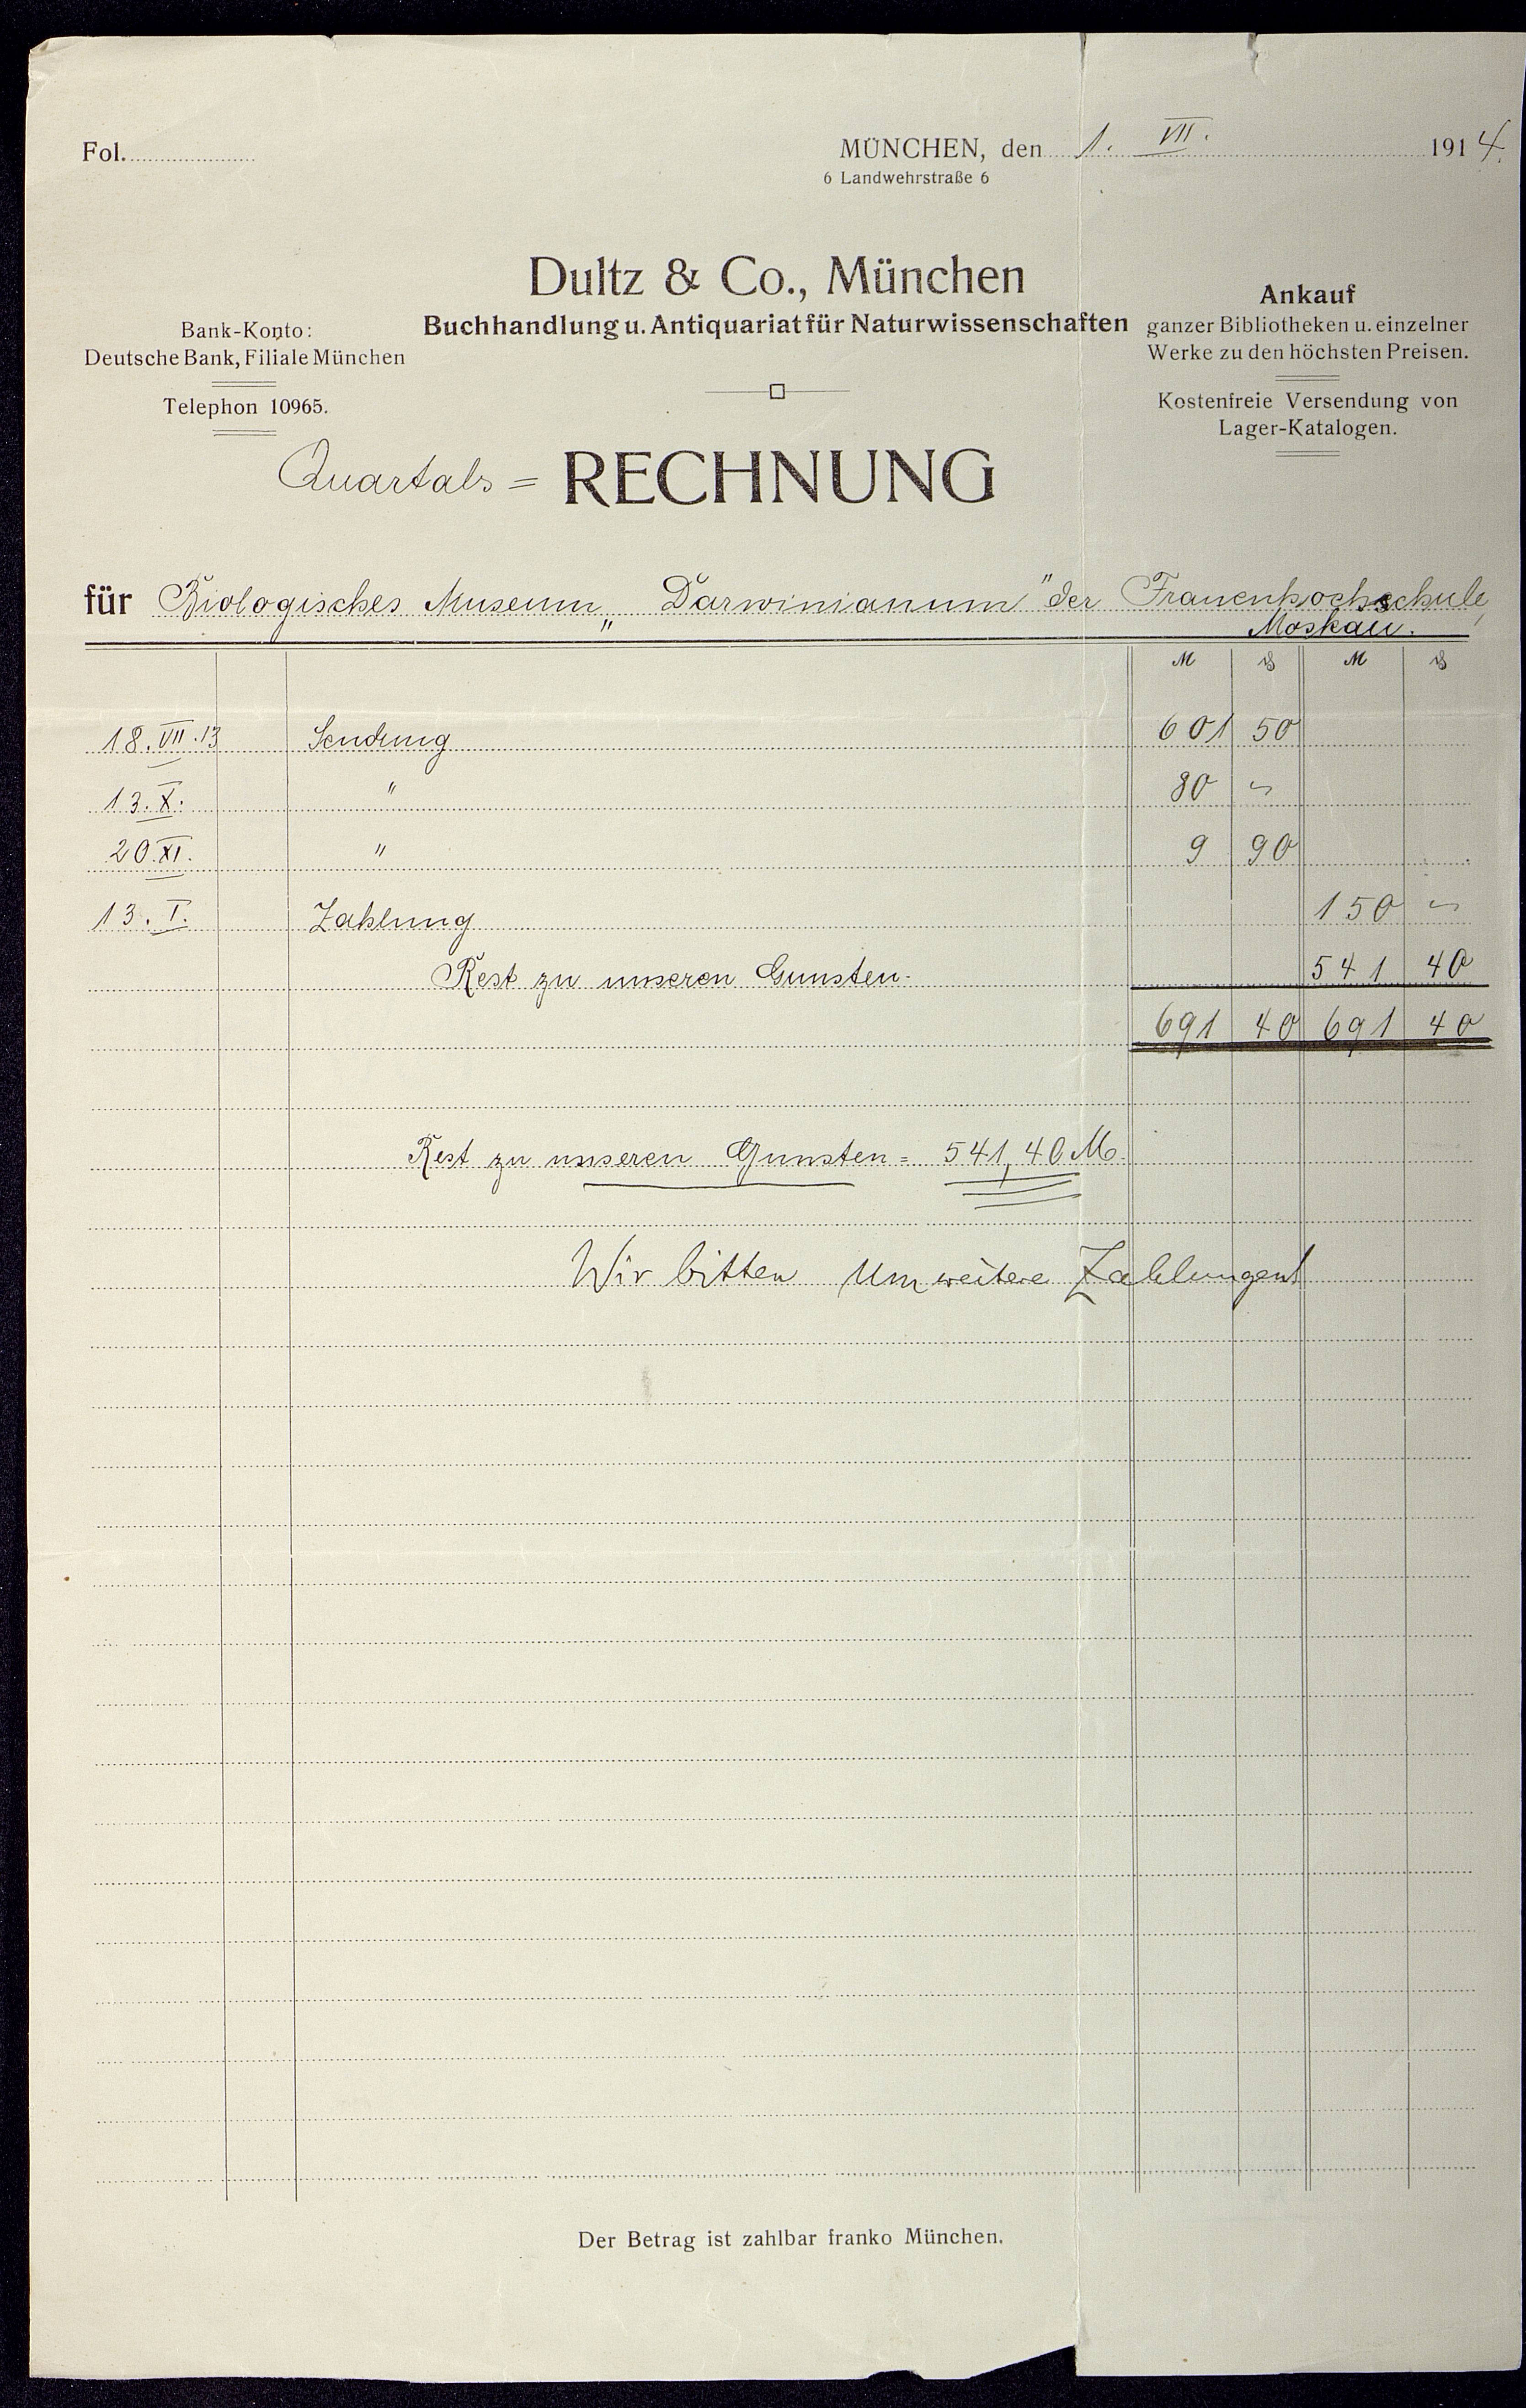 Fol.
MÜNCHEN, den 1. VII. 1914.
6 Landwehrstraße 6
Dultz & Co., München
Buchhandlung u. Antiquariat für Naturwissenschaften
Bank-Konto:
Deutsche Bank, Filiale München
Telephon 10965.
Ankauf
ganzer Bibliotheken u. einzelner
Werke zu den höchsten Preisen.
Kostenfreie Versendung von
Lager-Katalogen.
Quartals = RECHNUNG
für Biologisches Museum „Darwinianum" der Frauenhochschule,
Moskau.
M ₰ M ₰
18. VII. 13 Sendung 601 50
13. X. " 80 ~
20. XI. " 9 90
13. I. Zahlung 150 ~
Rest zu unseren Gunsten. 541 40
691 40 691 40
Rest zu unseren Gunsten = 541,40 M.
Wir bitten um weitere Zahlungen!
Der Betrag ist zahlbar franko München.